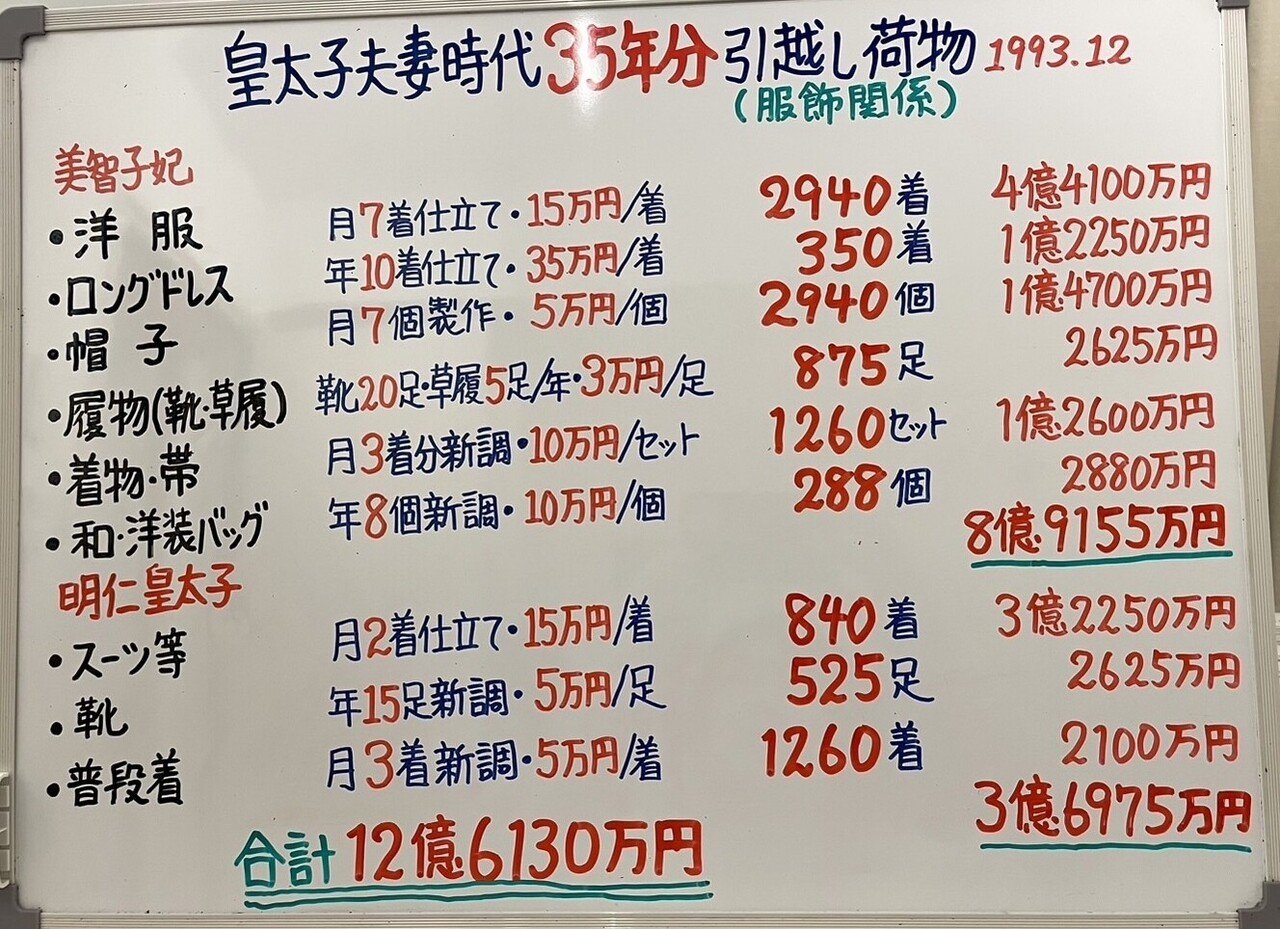 皇太子夫妻時代35年分引越し荷物 1993.12
(服飾関係)
美智子妃
・洋 服 月7着仕立て・15万円/着 2940着 4億4100万円
・ロングドレス 年10着仕立て・35万円/着 350着 1億2250万円
・帽 子 月7個製作・5万円/個 2940個 1億4700万円
・履物(靴・草履) 靴20足・草履5足/年・3万円/足 875足 2625万円
・着物・帯 月3着分新調・10万円/セット 1260セット 1億2600万円
・和・洋装バッグ 年8個新調・10万円/個 288個 2880万円
8億9155万円
明仁皇太子
・スーツ等 月2着仕立て・15万円/着 840着 3億2250万円
・靴 年15足新調・5万円/足 525足 2625万円
・普段着 月3着新調・5万円/着 1260着 2100万円
3億6975万円
合計 12億6130万円